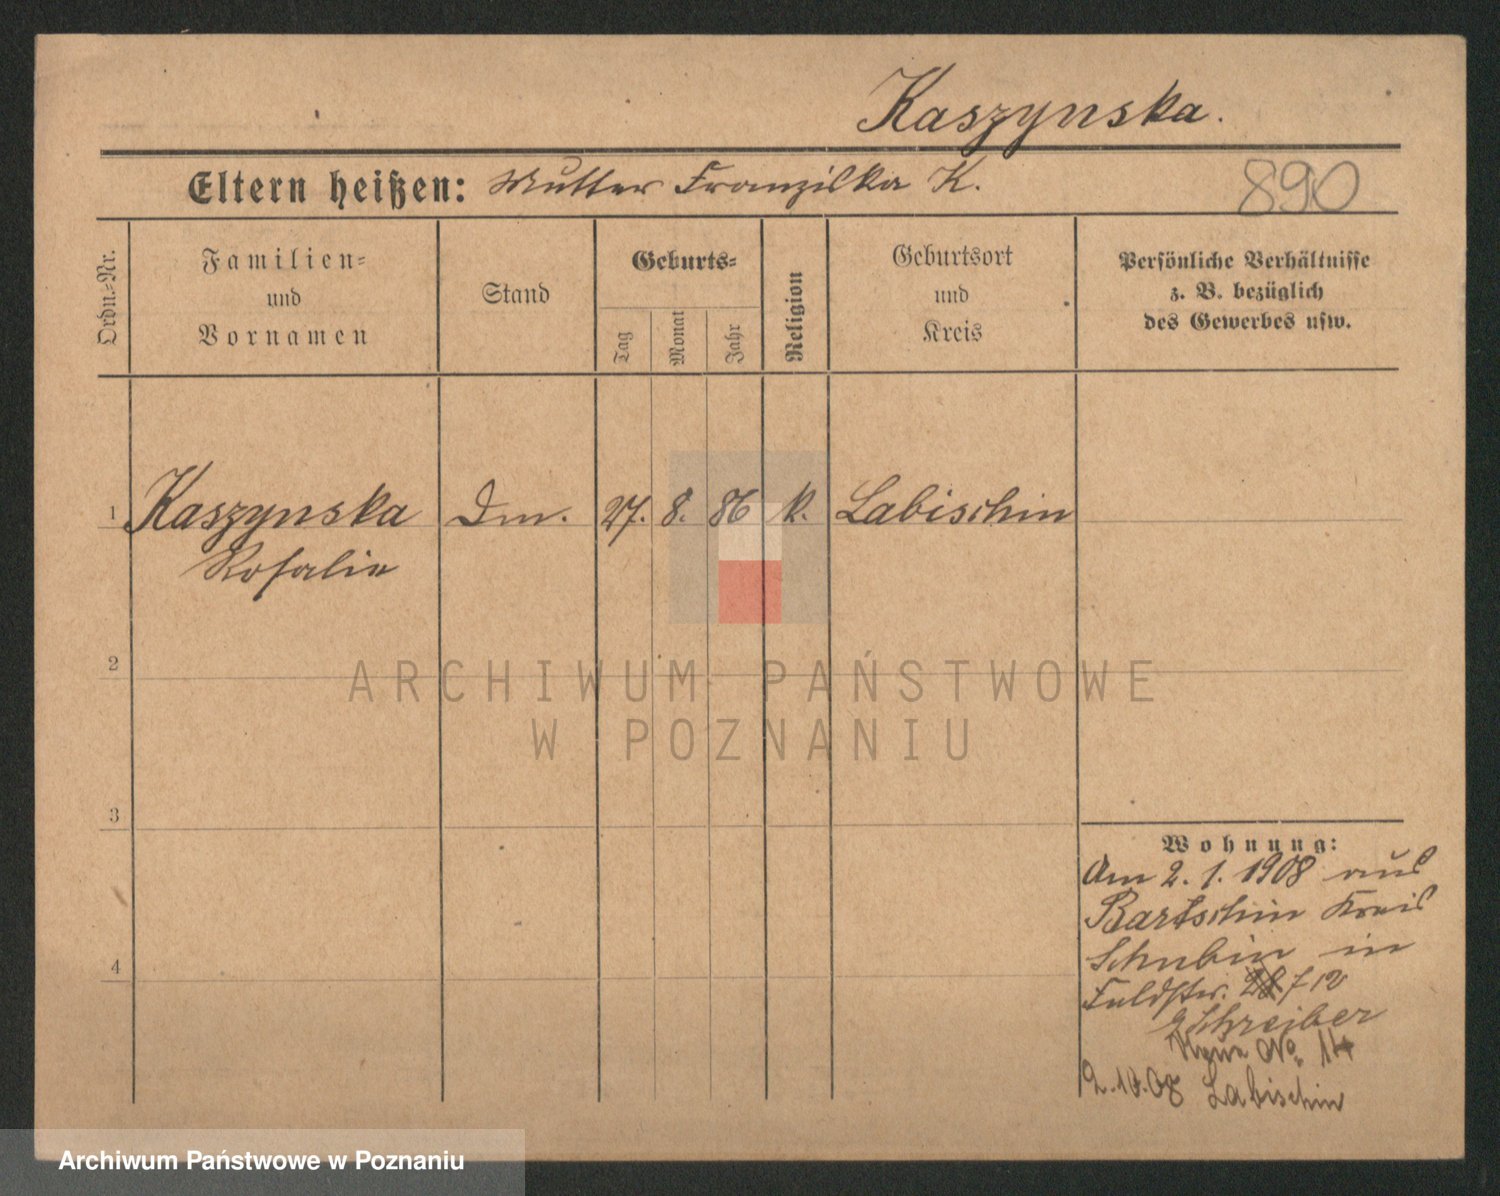 Kaszynska.
Eltern heißen: Mutter Franziska K.
890
Ordn.-Nr.
Familien-
und
Vornamen
Stand
Geburts-
Tag
Monat
Jahr
Religion
Geburtsort
und
Kreis
Persönliche Verhältnisse
z. B. bezüglich
des Gewerbes usw.
1 Kaszynska Dm. 27. 8. 86 k. Labischin
Rosalie
2
ARCHIWUM PAŃSTWOWE
W POZNANIU
3
Wohnung:
Am 2. 1. 1908 aus
Bartschin Kreis
Schubin in
Feldstr.
Schreiber
No. 14
2.10.08 Labischin
4
Archiwum Państwowe w Poznaniu